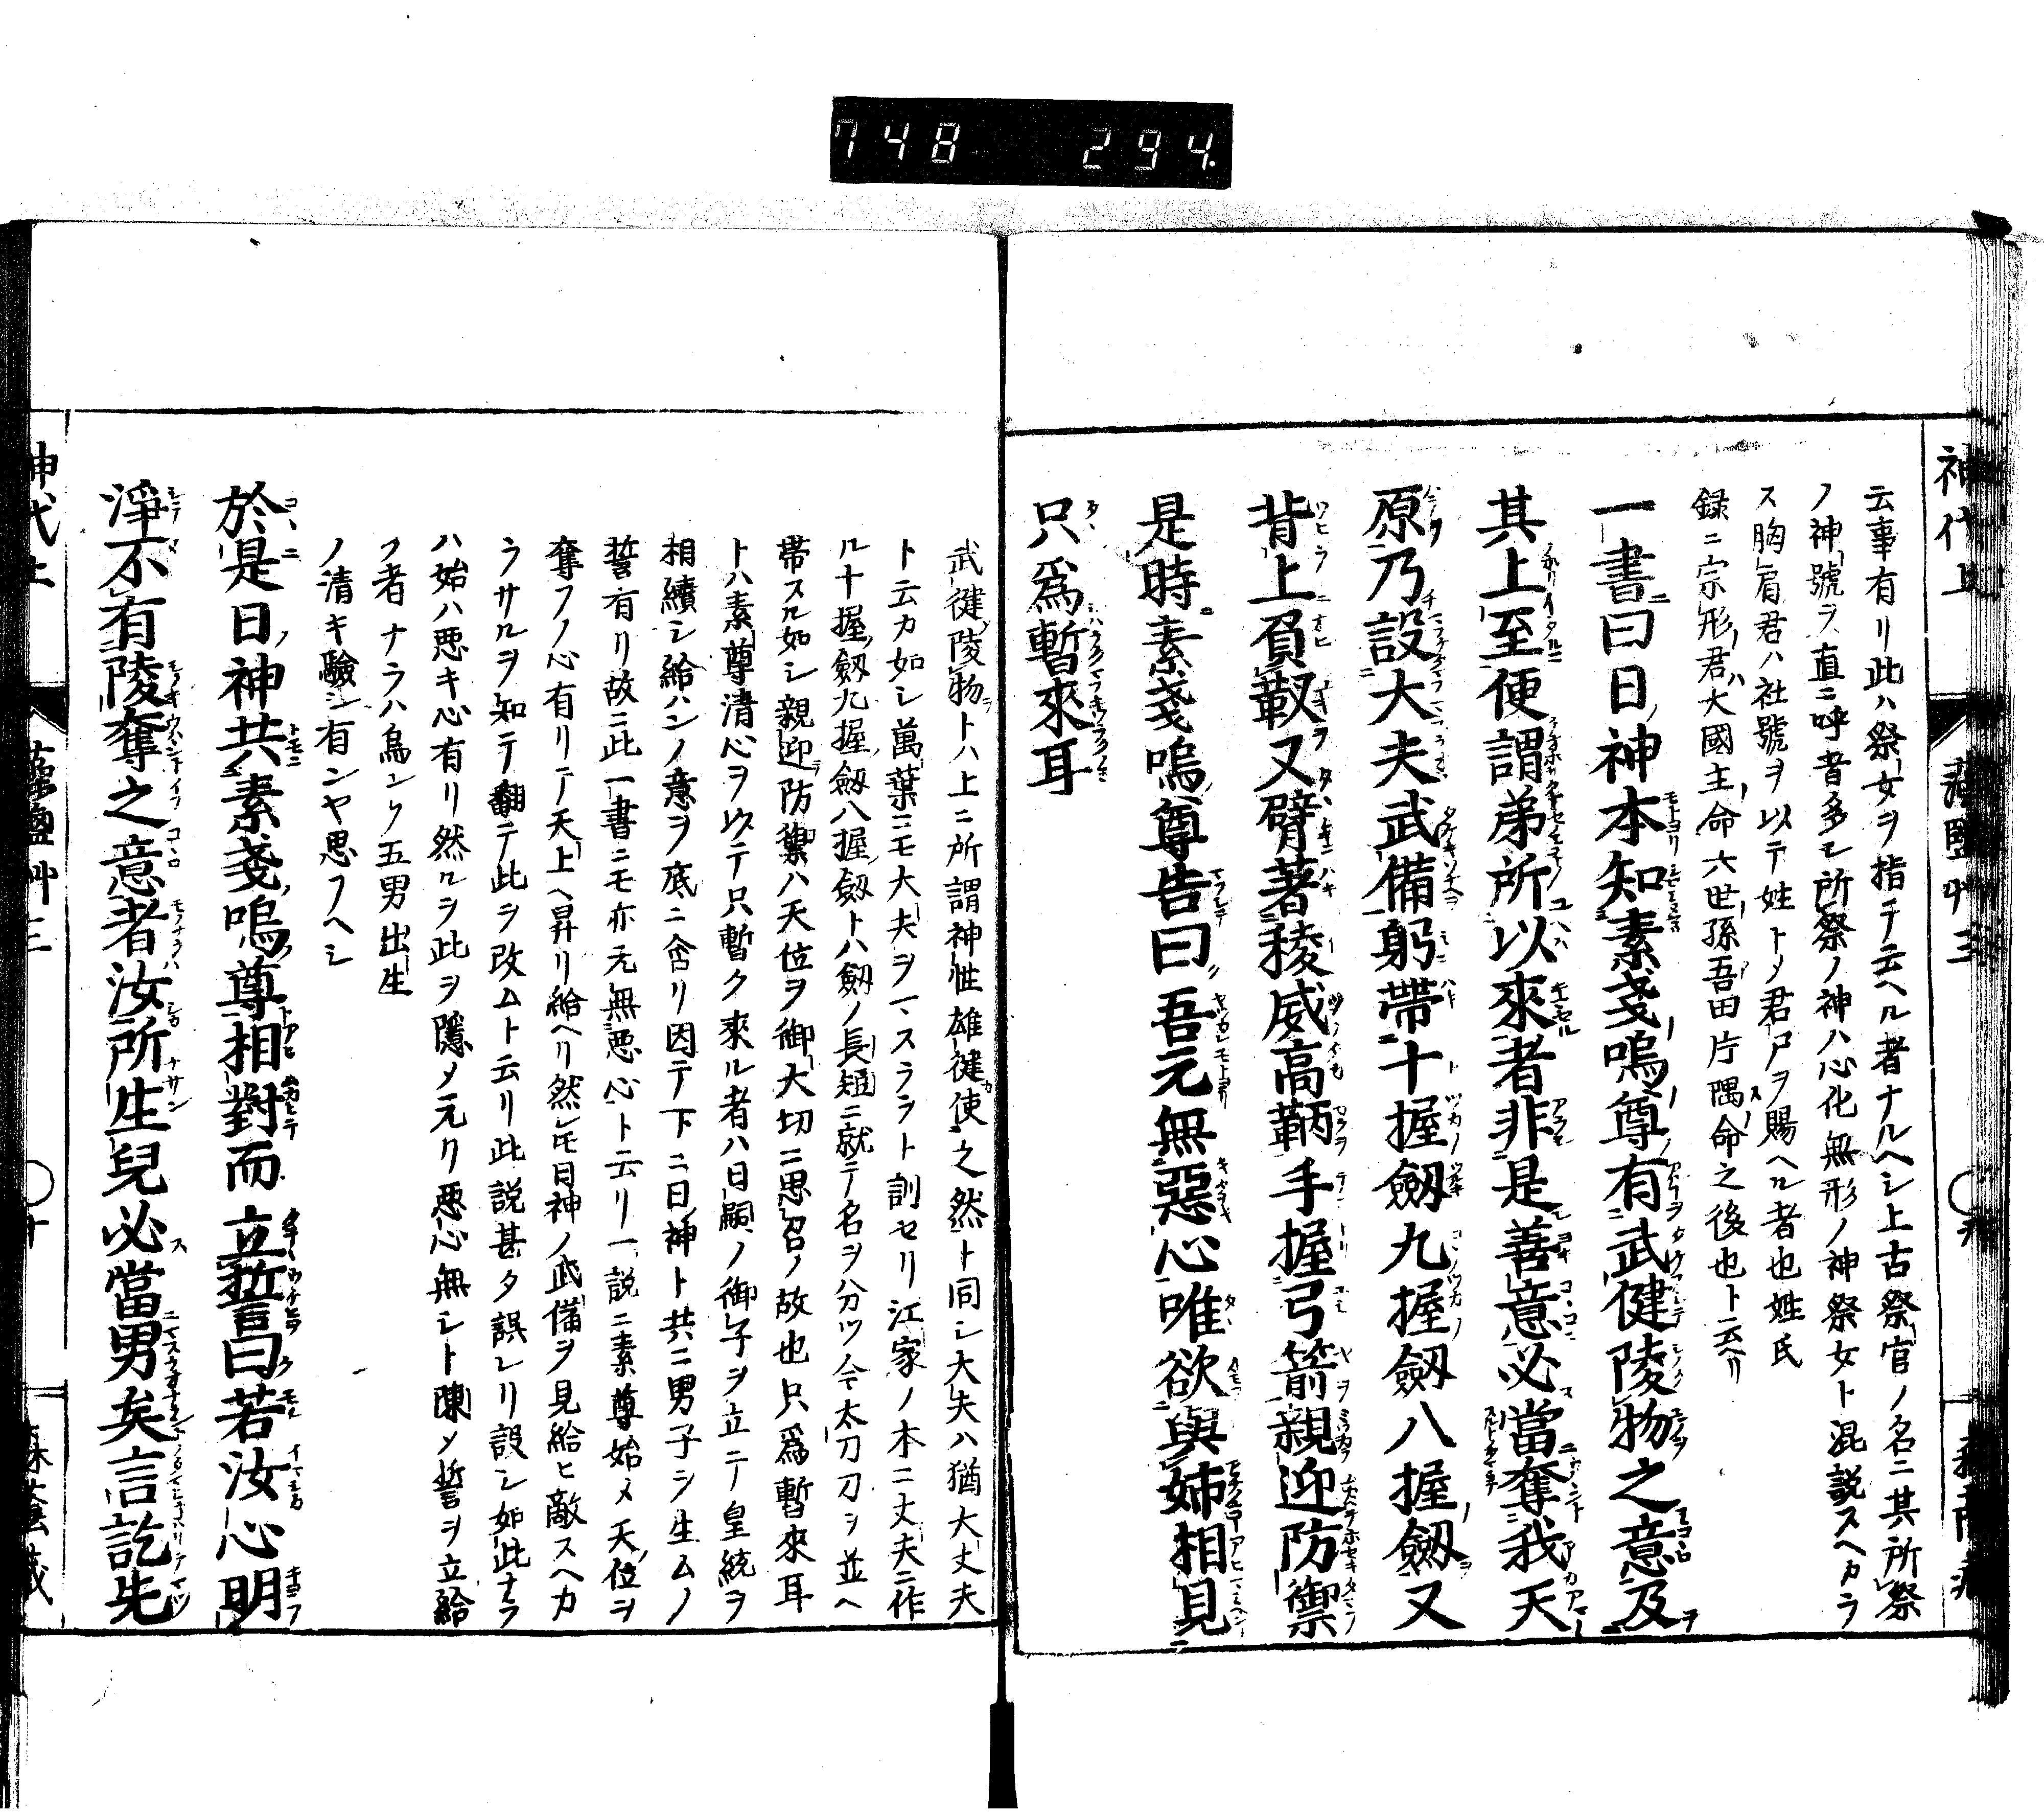 748 294
神代上
藻鹽艸三
云事有リ此ハ祭女ヲ指テ云ヘル者ナルヘシ上古祭官ノ名ニ其所祭
ノ神號ヲ直ニ呼者多モ所祭ノ神ハ心化無形ノ神祭女ト混説スヘカラ
ス胸肩君ハ社號ヲ以テ姓トメ君戸ヲ賜ヘル者也姓氏
録ニ宗形君大國主命六世孫吾田片隅命之後也ト云ヘリ
一書曰日神本知素戔嗚尊有武健陵物之意及
其上至便謂弟所以來者非是善意必當奪我天
原乃設大夫武備躬帶十握劔九握劔八握劔又
背上負靫又臂著稜威高鞆手握弓箭親迎防禦
是時素戔嗚尊告曰吾元無惡心唯欲與姉相見
只爲暫來耳
武健陵物トハ上ニ所謂神性雄健使之然ト同シ大夫ハ猶大丈夫
ト云カ如シ萬葉ニモ大夫ヲマスラヲト訓セリ江家ノ本ニ丈夫ニ作
ル十握劔九握劔八握劔トハ劔ノ長短ニ就テ名ヲ分ツ今太刀刀ヲ並ヘ
帶スル如シ親迎防禦ハ天位ヲ御大切ニ思召ノ故也只爲暫來耳
トハ素尊清心ヲ以テ只暫ク來ル者ハ日嗣ノ御子ヲ立テ皇統ヲ
相續シ給ハンノ意ヲ底ニ含リ因テ下ニ日神ト共ニ男子ヲ生ムノ
誓有リ故ニ此一書ニモ亦元無惡心ト云リ一説ニ素尊始メ天位ヲ
奪フノ心有リテ天上ヘ昇リ給ヘリ然レモ日神ノ武備ヲ見給ヒ敵スヘカ
ラサルヲ知テ翻テ此ヲ改ムト云リ此説甚タ誤レリ設シ如此ナラ
ハ始ハ悪キ心有リ然ルヲ此ヲ隱メ元ヨリ悪心無シト陳メ誓ヲ立給
フ者ナラハ烏ンソ五男出生
ノ清キ驗シ有ンヤ思フヘシ
於是日神共素戔嗚尊相對而立誓曰若汝心明
淨不有陵奪之意者汝所生兒必當男矣言訖先
神代上
藻鹽艸三
十